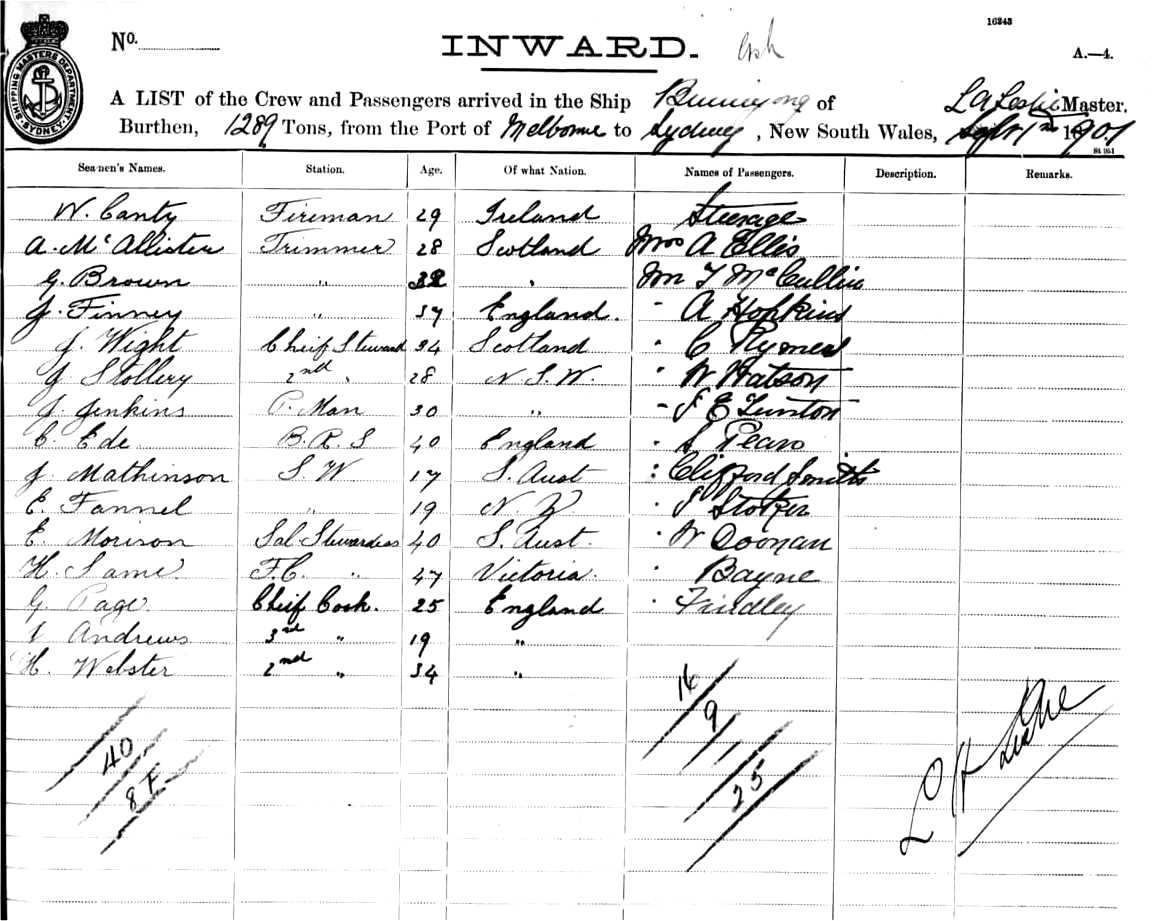 16243
No. INWARD.
A.—4.
SHIPPING MASTERS DEPARTMENT. SYDNEY.
A LIST of the Crew and Passengers arrived in the Ship Buninyong of L A Leslie Master.
Burthen, 1289 Tons, from the Port of Melborne to Sydney, New South Wales, Sept 1st 1901
Seamen's Names. Station. Age. Of what Nation. Names of Passengers. Description. Remarks.
W. Canty Fireman 29 Ireland Steerage
A. McAllister Trimmer 28 Scotland Mrs A Ellis
G. Brown " 32 " Mr T McCullin
J. Finney " 37 England. - A Hopkins
J. Wight Cheif Steward 34 Scotland " C Rymes
J Stollery 2nd " 28 N. S. W. " W Watson
J. Jenkins P. Man 30 " - J E
C. Ede B. R. S 40 England " S
J. Mathinson S. W 17 S. Aust : Clifford Smith
E. Fannel " 19 N. Z " S Stoker
E. Morison Sal Stewardess 40 S. Aust. " W Doonan
H. Lame. F.C. " 47 Victoria. " Bayne
G. Page. Cheif Cook. 25 England " Findley
Andrews 3rd " 19 "
H. Webster 2nd " 34 "
16
9
40
8 F
25
L A Leslie